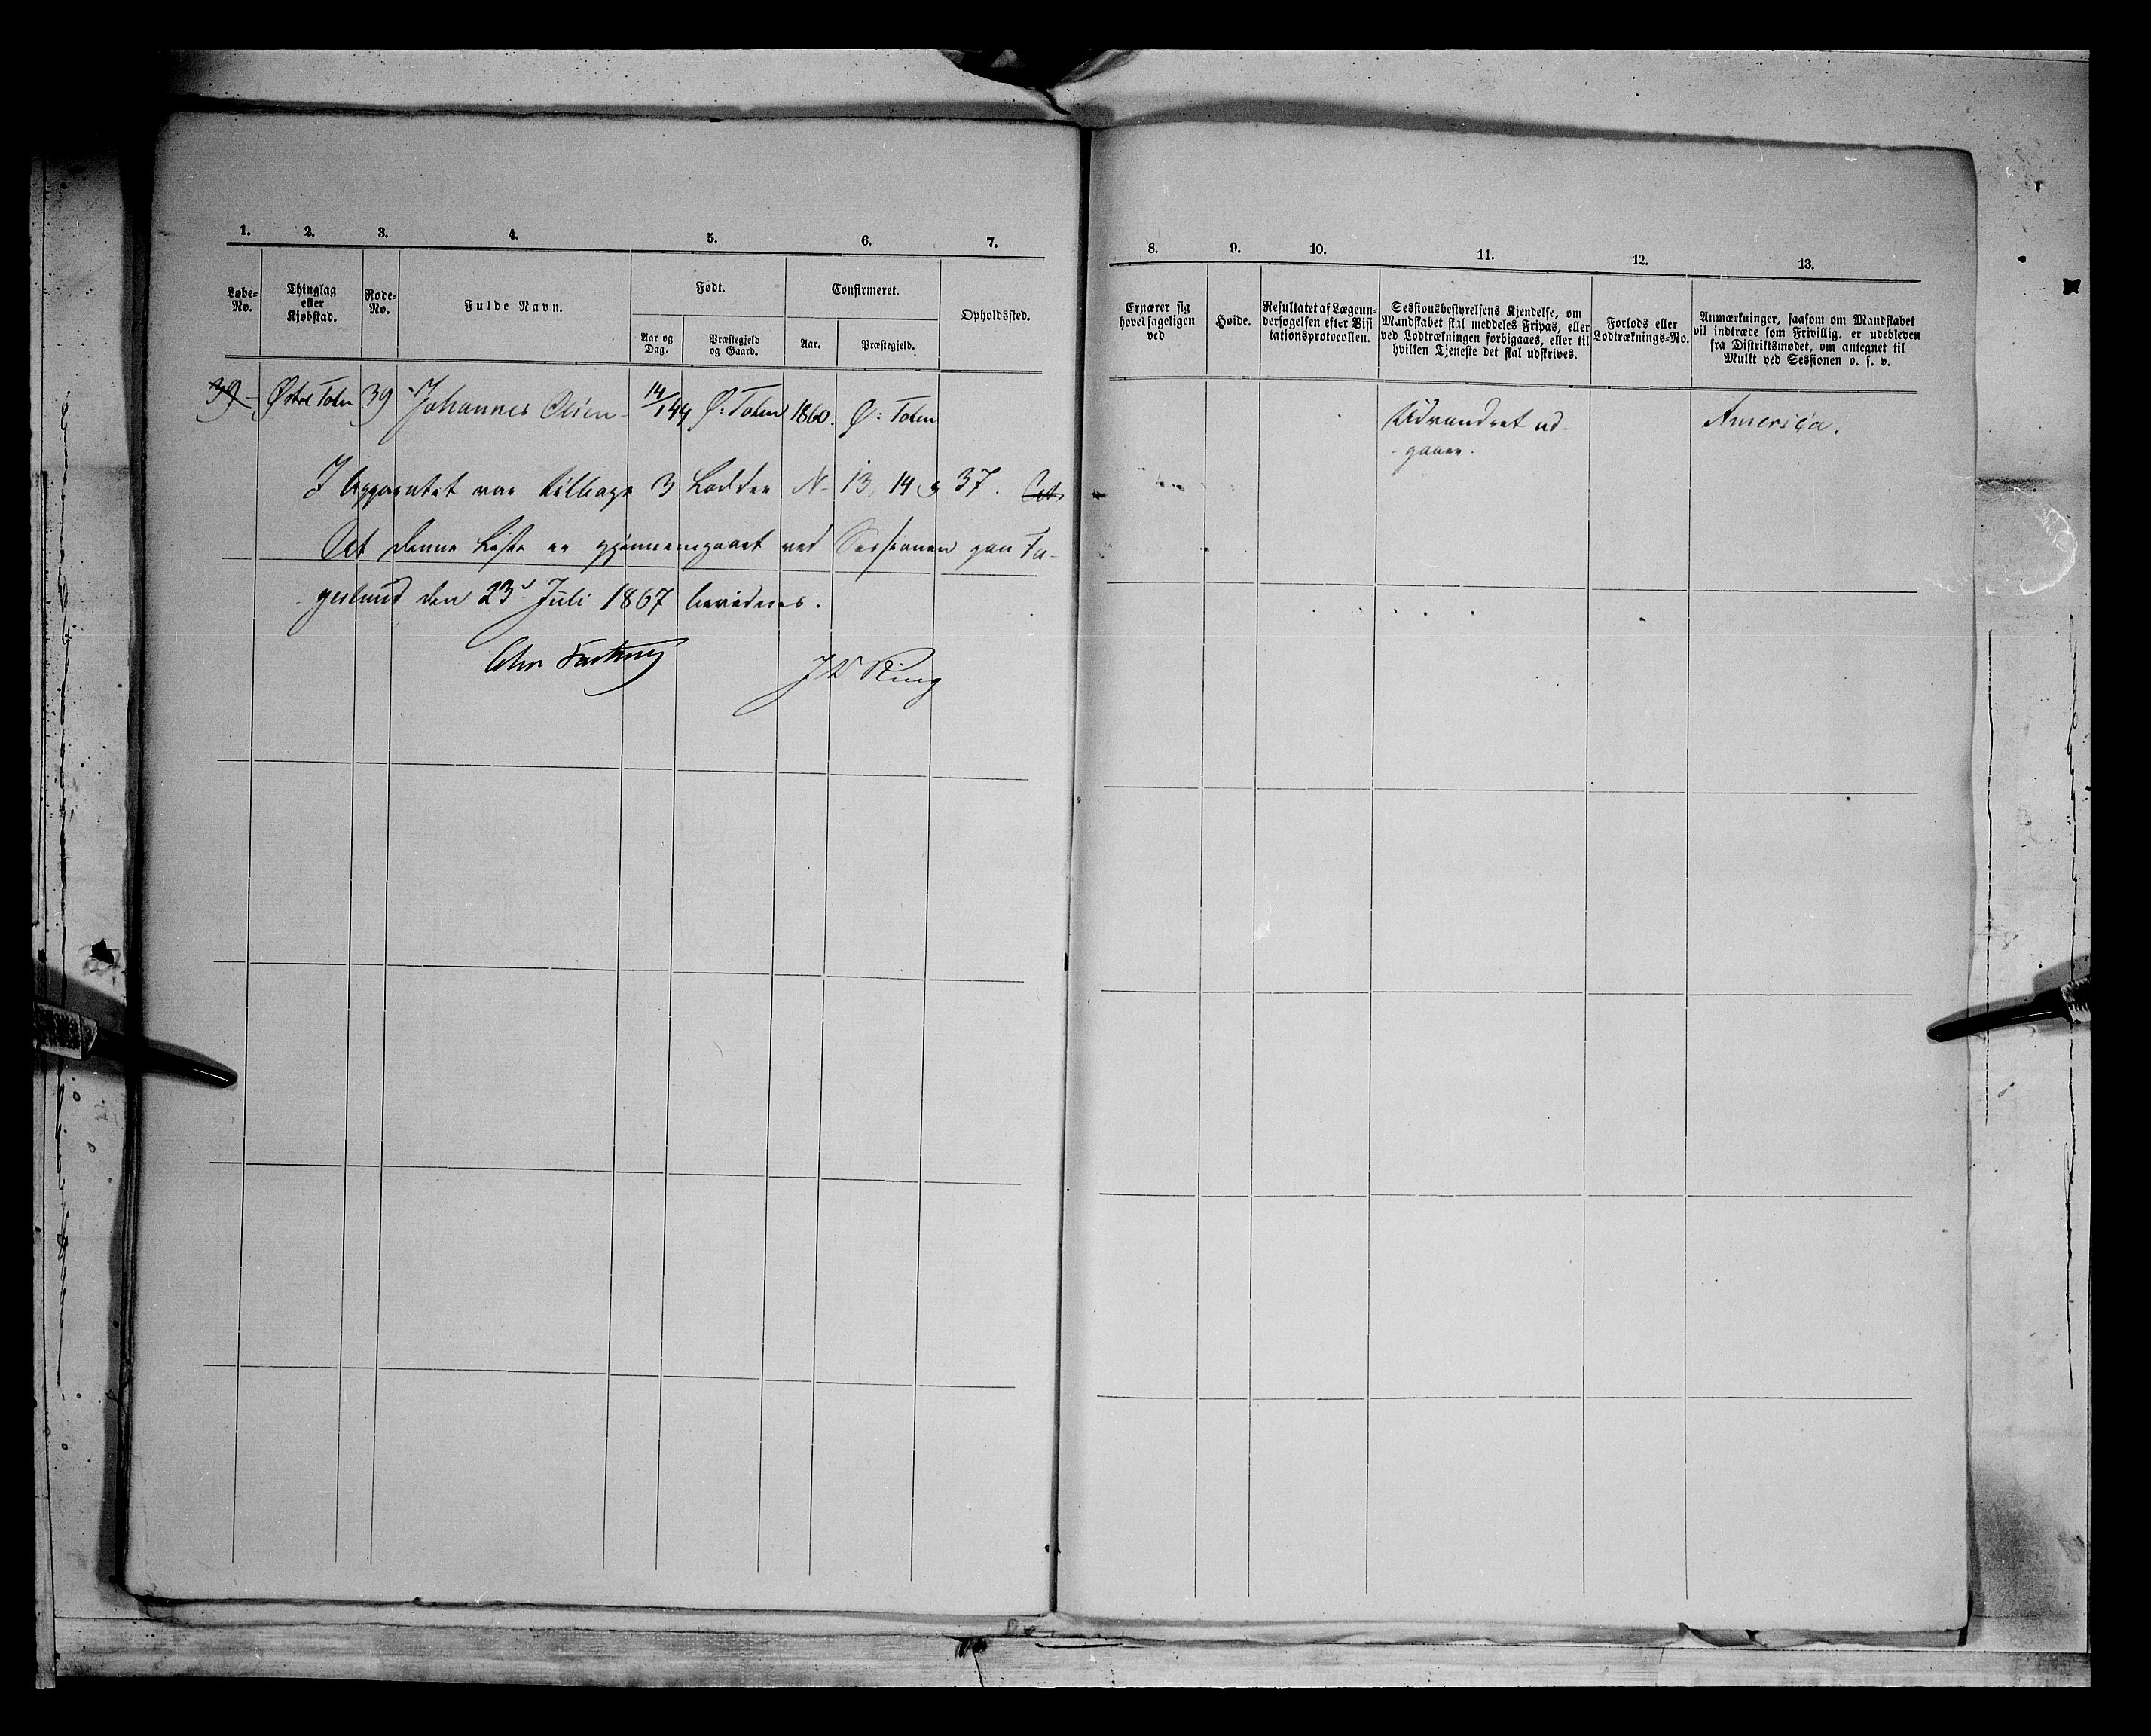 1. 2. 3. 4. 5. 6. 7.
Løbe-No. Thinglag eller Kjøbstad. Rode-No. Fulde Navn. Født. Confirmeret. Opholdssted.
Aar og Dag. Præstegjeld og Gaard. Aar. Præstegjeld.
39 Østre Toten 39 Johannes Olsen 14/1 44 Ø: Toten 1860. Ø: Toten
I Apparatet var tilbage 3 Lodder N 13, 14 & 37.
At denne Liste er gjennemgaaet ved Sessionen paa Fa-
geslund den 23d Juli 1867 bevidnes.
J W Ring
8. 9. 10. 11. 12. 13.
Ernærer sig hovedsageligen ved
Høide.
Resultatet af Lægeun-
dersøgelsen efter Visi
tationsprotocollen.
Sessionsbestyrelsens Kjendelse, om
Mandskabet skal meddeles Fripas, eller
ved Lodtrækningen forbigaaes, eller til
hvilken Tjeneste det skal udskrives.
Forlods eller
Lodtræknings-No.
Anmærkninger, saasom om Mandskabet
vil indtræde som Frivillig, er udebleven
fra Distriktsmødet, om antegnet til
Mulkt ved Sessionen o. s. v.
Udvandret ud-
gaaer.
America.